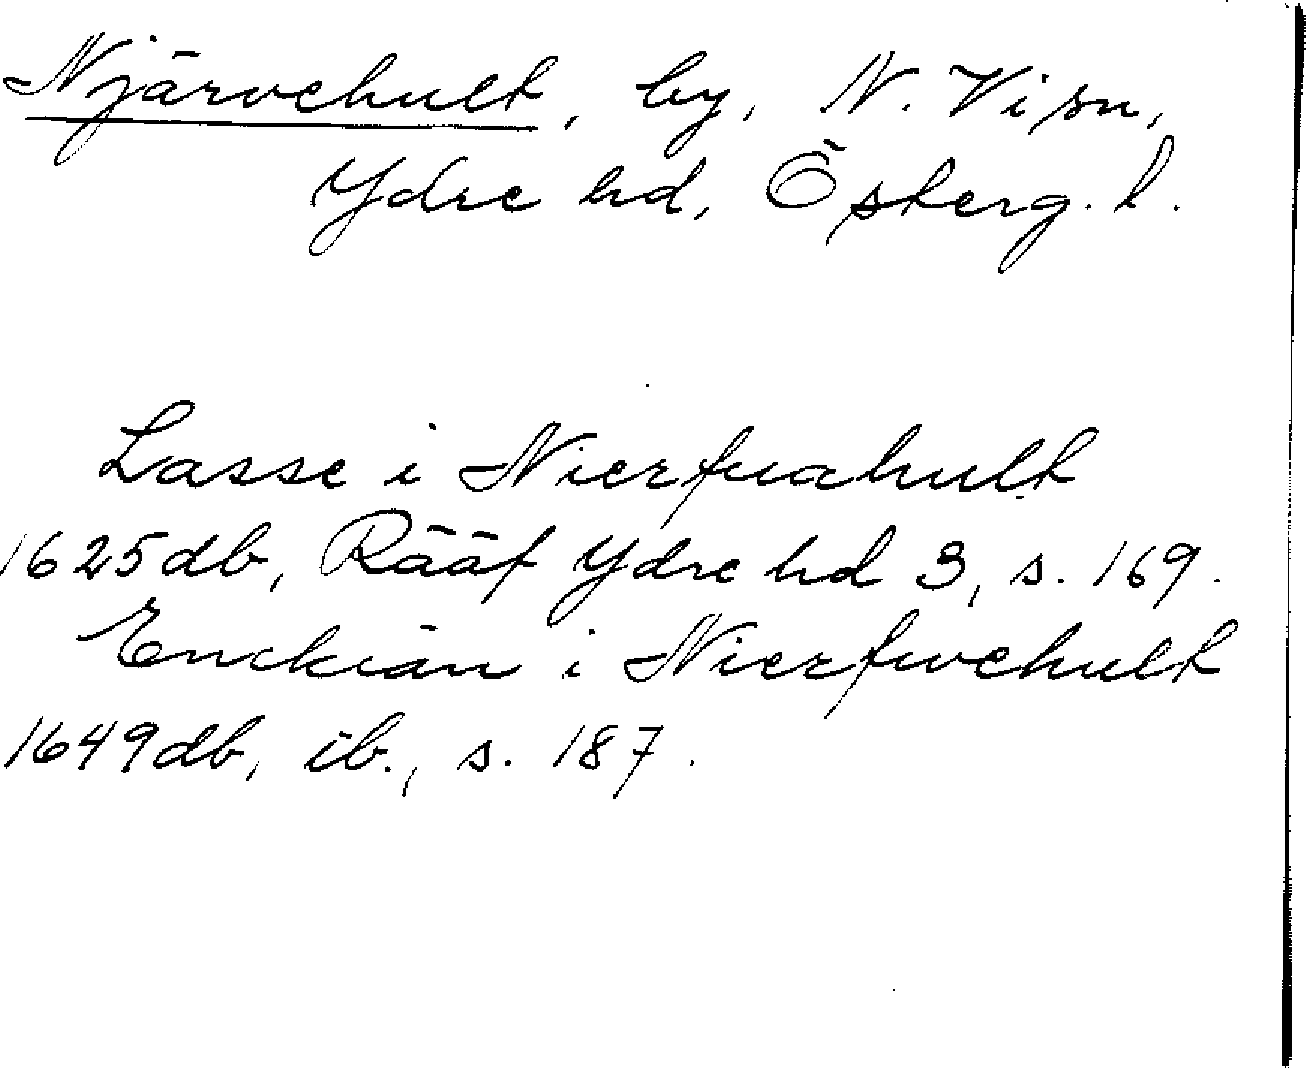 Njärvehult, by, N. Visn,
Ydre hd, Österg. l.
Lasse i Nierfuahult
1625db, Rääf Ydre hd 3, s. 169.
Enckiän i Nierfwehult
1649db, ib., s. 187.